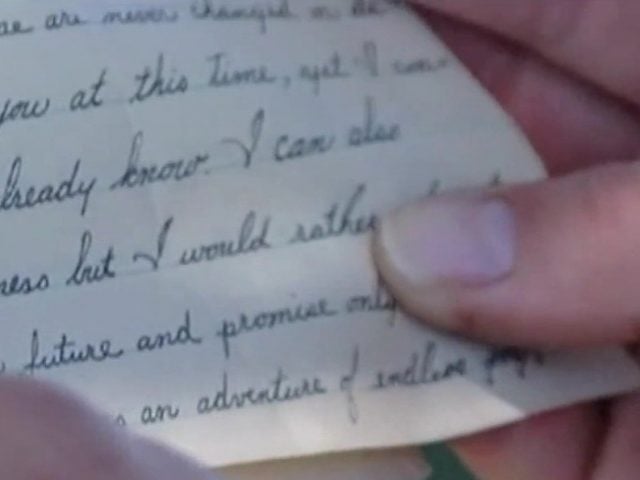 are never changed in
you at this time, yet I
already know. I can also
ness but I would rather
future and promise only
an adventure of endless